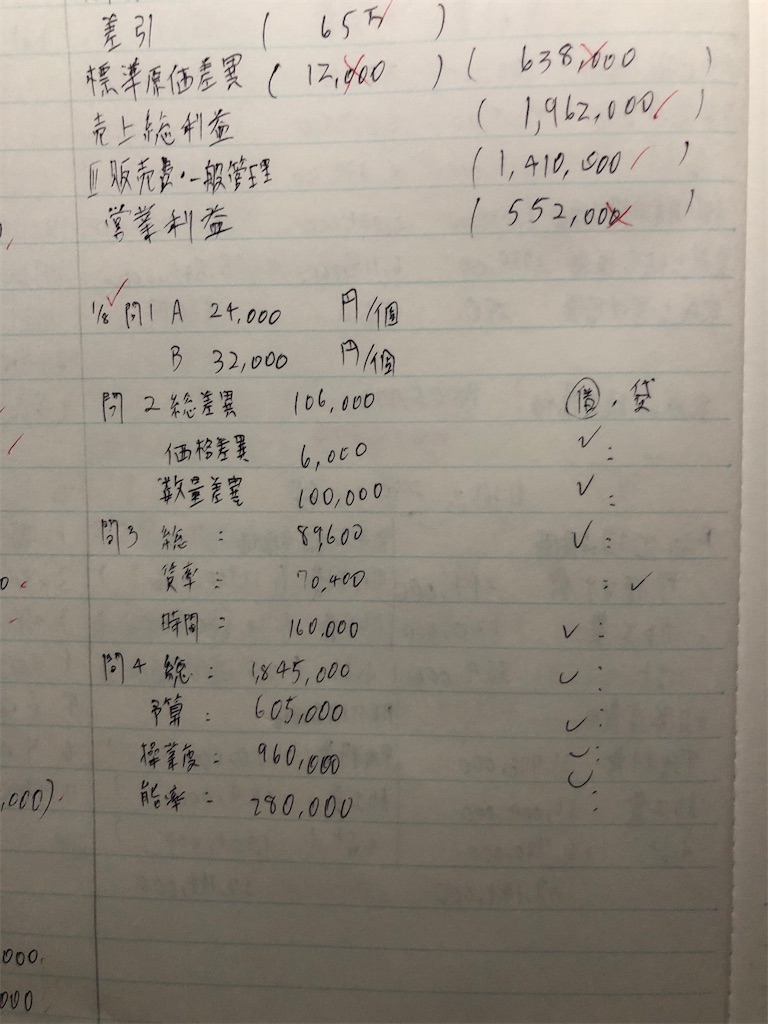 差引 ( 65万 )
標準原価差異 ( 12,000 ) ( 638,000 )
売上総利益 ( 1,962,000 )
II 販売費・一般管理 ( 1,410,000 )
営業利益 ( 552,000 )
1/8 問1 A 24,000 円/個
B 32,000 円/個
問2 総差異 106,000 借・貸
価格差異 6,000 ✓ :
数量差異 100,000 ✓ :
問3 総 : 89,600 ✓ :
賃率 : 70,400 : ✓
時間 : 160,000 ✓ :
問4 総 : 1,845,000 ✓ :
予算 : 605,000 ✓ :
操業度 : 960,000 ✓ :
能率 : 280,000 ✓ :
,000).
000.
000